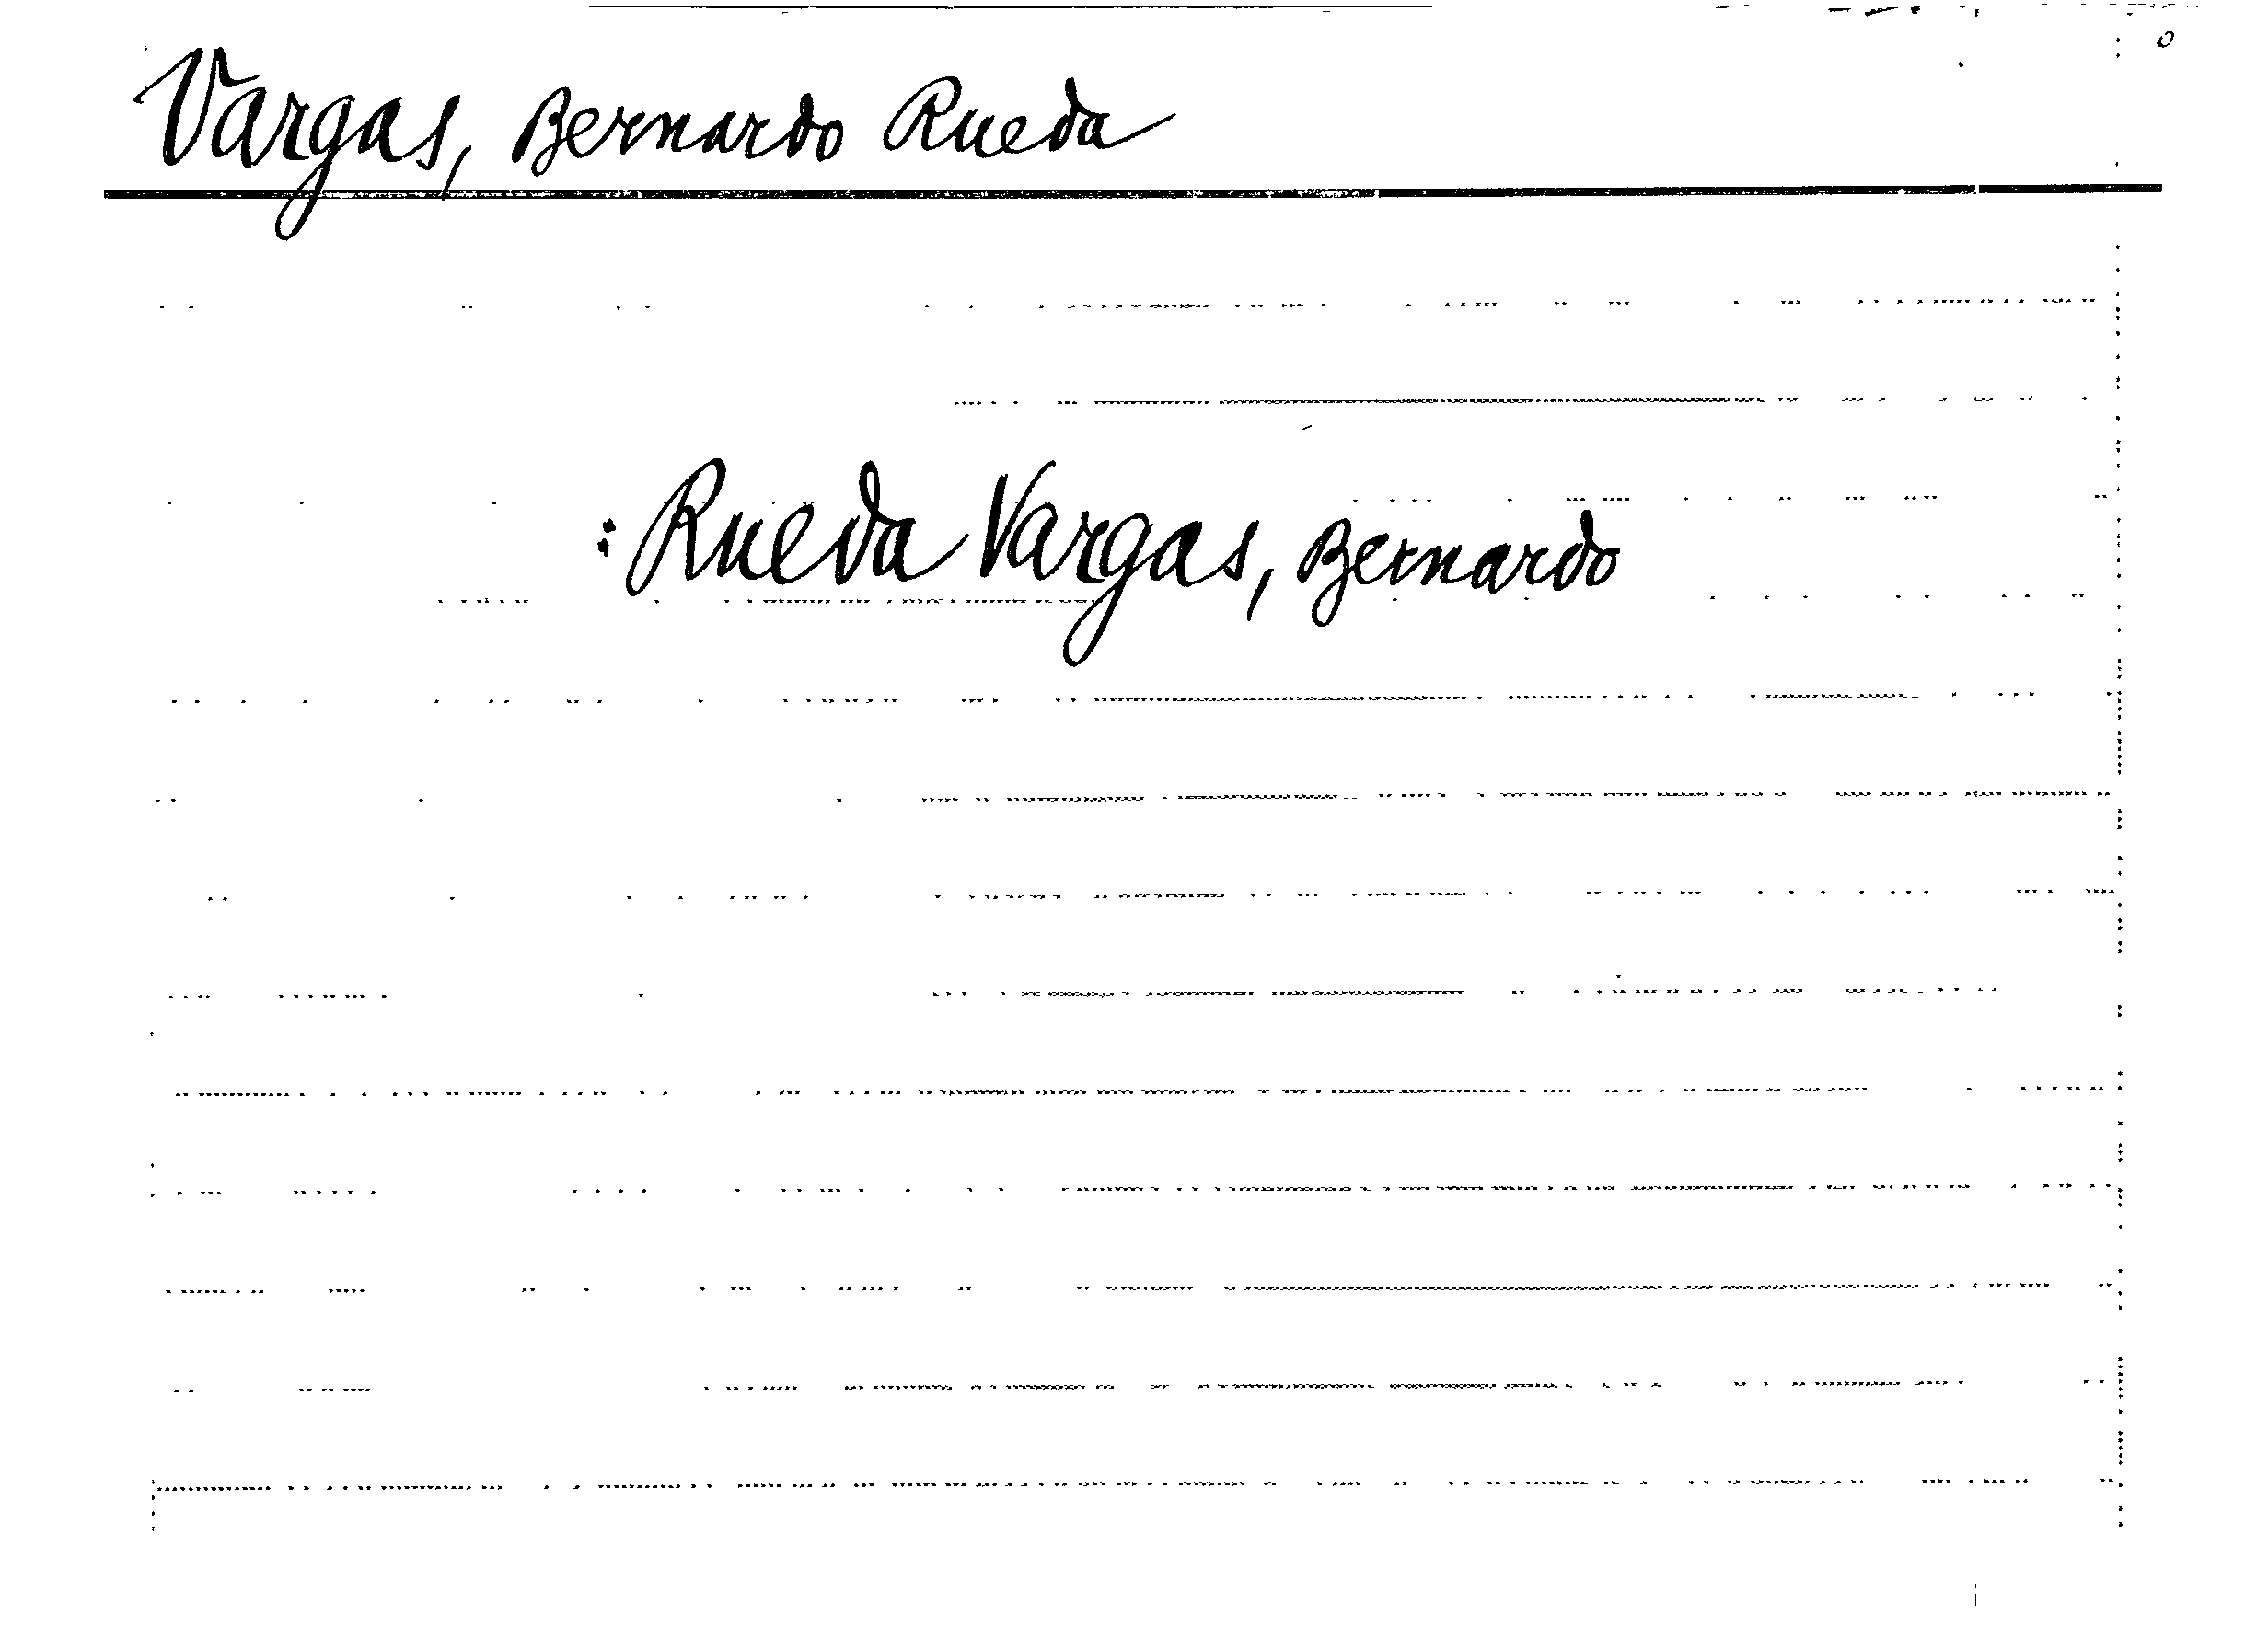 Vargas, Bernardo Rueda
: Rueda Vargas, Bernardo